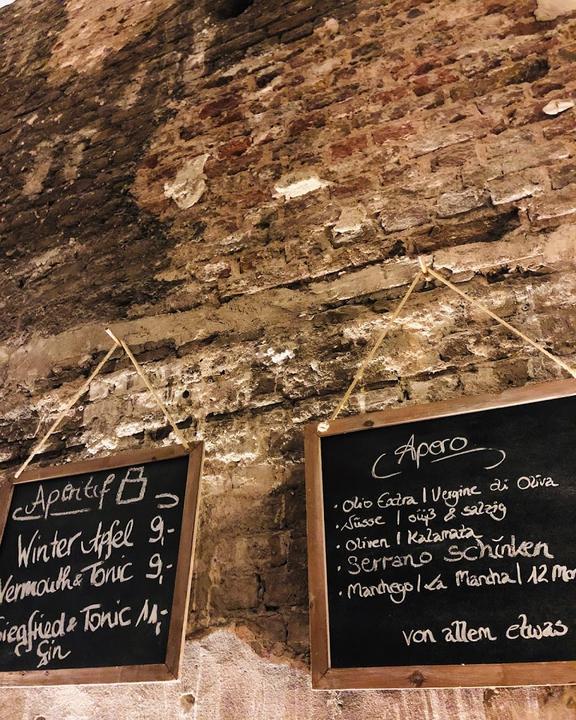 Apéritif
Winter Apfel 9,-
Vermouth & Tonic 9,-
Siegfried & Tonic 11,-
Gin
Apero
· Olio Extra | Vergine di Oliva
· Nüsse | süß & salzig
· Oliven | Kalamata
· Serrano Schinken
· Manchego | La Mancha | 12 Mon
von allem etwas